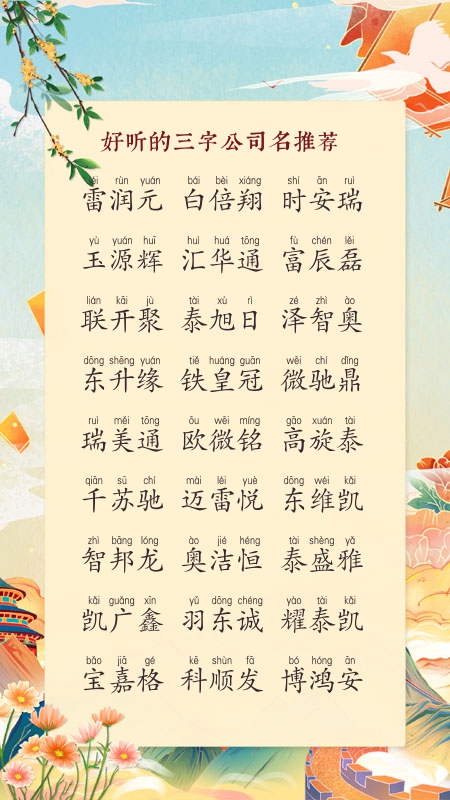 好听的三字公司名推荐
léi rùn yuán bái bèi xiáng shí ān ruì
雷润元 白倍翔 时安瑞
yù yuán huī huì huá tōng fù chén lěi
玉源辉 汇华通 富辰磊
lián kāi jù tài xù rì zé zhì ào
联开聚 泰旭日 泽智奥
dōng shēng yuán tiě huáng guān wēi chí dǐng
东升缘 铁皇冠 微驰鼎
ruì měi tōng ōu wēi míng gāo xuán tài
瑞美通 欧微铭 高旋泰
qiān sū chí mài léi yuè dōng wéi kǎi
千苏驰 迈雷悦 东维凯
zhì bāng lóng ào jié héng tài shèng yǎ
智邦龙 奥洁恒 泰盛雅
kǎi guǎng xīn yǔ dōng chéng yào tài kǎi
凯广鑫 羽东诚 耀泰凯
bǎo jiā gé kē shùn fā bó hóng ān
宝嘉格 科顺发 博鸿安